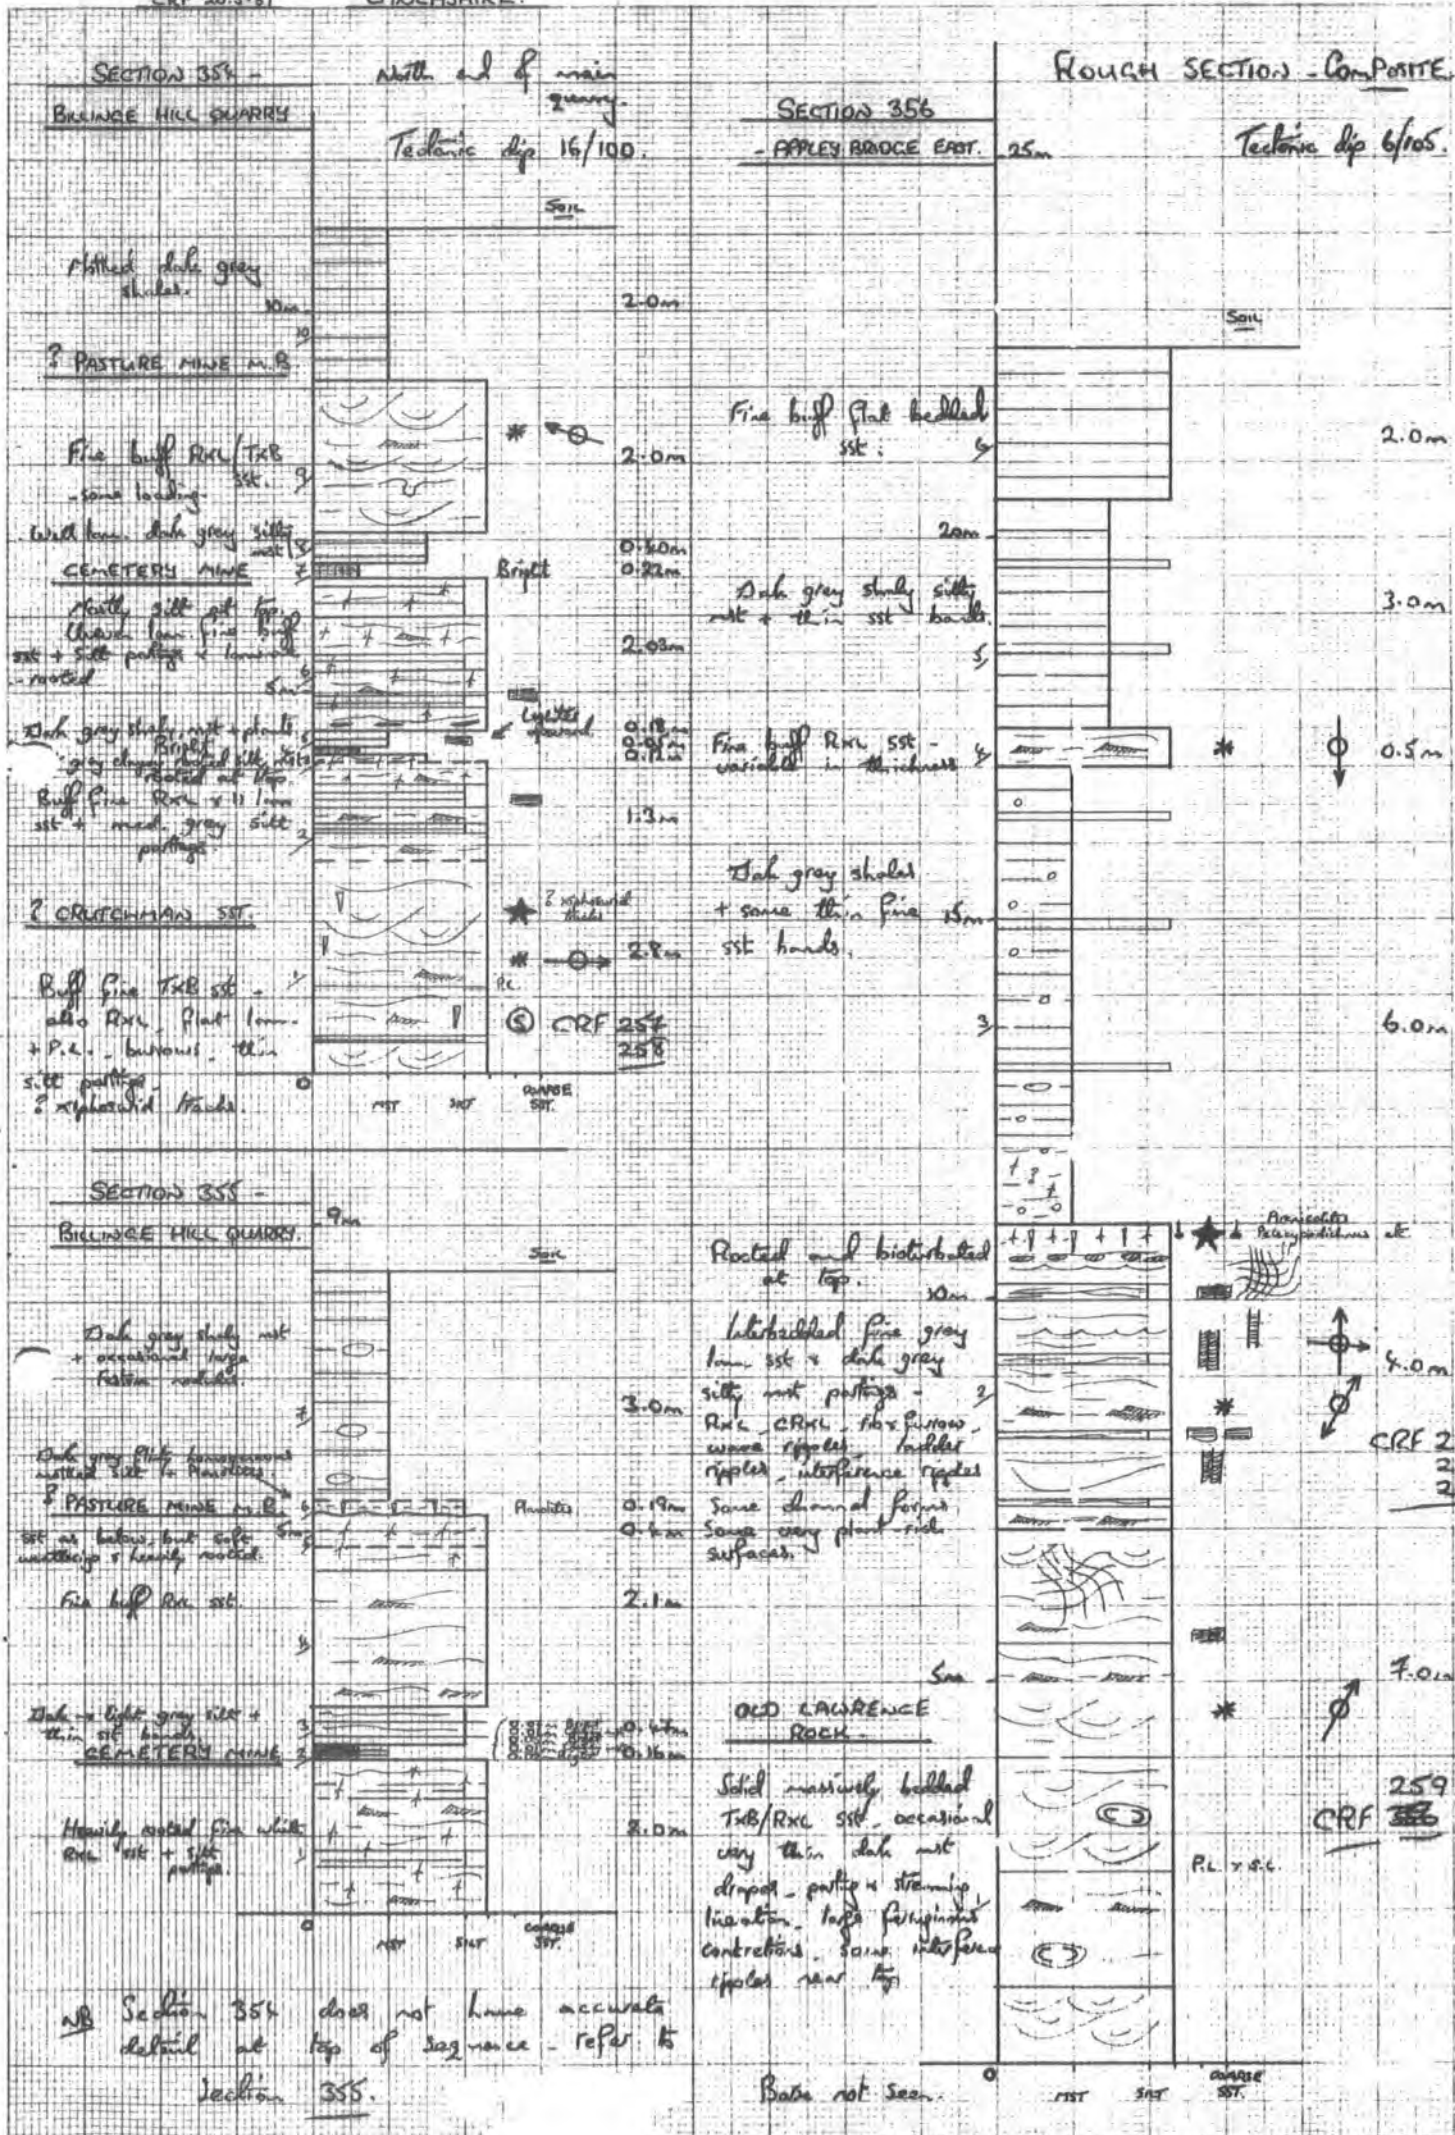 LANCASHIRE.
SECTION 354 -
BILLINGE HILL QUARRY
North end of main
quarry.
Tectonic dip 16/100.
Soil
Mottled dark grey
shales.
10m
10
2.0m
? PASTURE MINE M.B.
Fine buff RXL/TXB
sst.
- some loading.
9
2.0m
Well lam. dark grey silty
mst
8
0.40m
CEMETERY MINE
7
Bright
0.22m
Mostly silt at top.
Uneven lam. fine buff
sst + silt partings
- rooted
6
5m
2.03m
Dark grey shaly mst + plants
Bright
grey clayey rooted silty mst
rooted at top
Buff fine RXL & 11 lam
sst + med. grey silt
partings.
2
1.3m
? CRUTCHMAN SST.
? xiphosurid
tracks
2.8m
Buff fine TXB sst -
also RXL, flat lam.
+ P.L., burrows, thin
silt partings.
? xiphosurid tracks.
1
P.L.
S CRF 257
258
0
MST SILT COARSE
SST.
SECTION 355 -
BILLINGE HILL QUARRY.
9m
Soil
Dark grey shaly mst
+ occasional large
nodules.
7
3.0m
Dark grey homogeneous
mottled silt
? PASTURE MINE M.B.
6
Planolites
0.19m
sst as below, but soft
weathering & heavily rooted.
5m
5
0.4m
Fine buff RXL sst.
4
2.1m
Dark - light grey silt +
thin sst bands
3
CEMETERY MINE
2
0.16m
Heavily rooted fine white
RXL sst + silt
partings.
1
2.0m
0
MST SILT COARSE
SST.
NB Section 354 does not have accurate
detail at top of sequence - refer to
Section 355.
ROUGH SECTION - COMPOSITE.
SECTION 356
- APPLEY BRIDGE EAST.
25m
Tectonic dip 6/105.
Soil
Fine buff flat bedded
sst.
6
2.0m
20m
Dark grey shaly silty
mst + thin sst bands.
5
3.0m
Fine buff RXL sst -
variable in thickness
4
0.5m
Dark grey shales
+ some thin fine
sst bands.
15m
3
6.0m
?
Rooted and bioturbated
at top.
Arenicolites
Pelecypodichnus etc
10m
Interbedded fine grey
lam. sst & dark grey
silty mst partings -
RXL, CRXL, rib & furrow,
wave ripples, ladder
ripples, interference ripples
Some channel forms.
Some very plant-rich
surfaces.
2
4.0m
CRF 2
2
2
5m
7.0m
OLD LAWRENCE
ROCK -
Solid massively bedded
TXB/RXL sst, occasional
very thin dark mst
drapes, parting & streaming
lineation, large ferruginous
concretions, some interference
ripples near top
1
P.L. & S.L.
259
CRF
0
MST SILT COARSE
SST.
Base not seen.